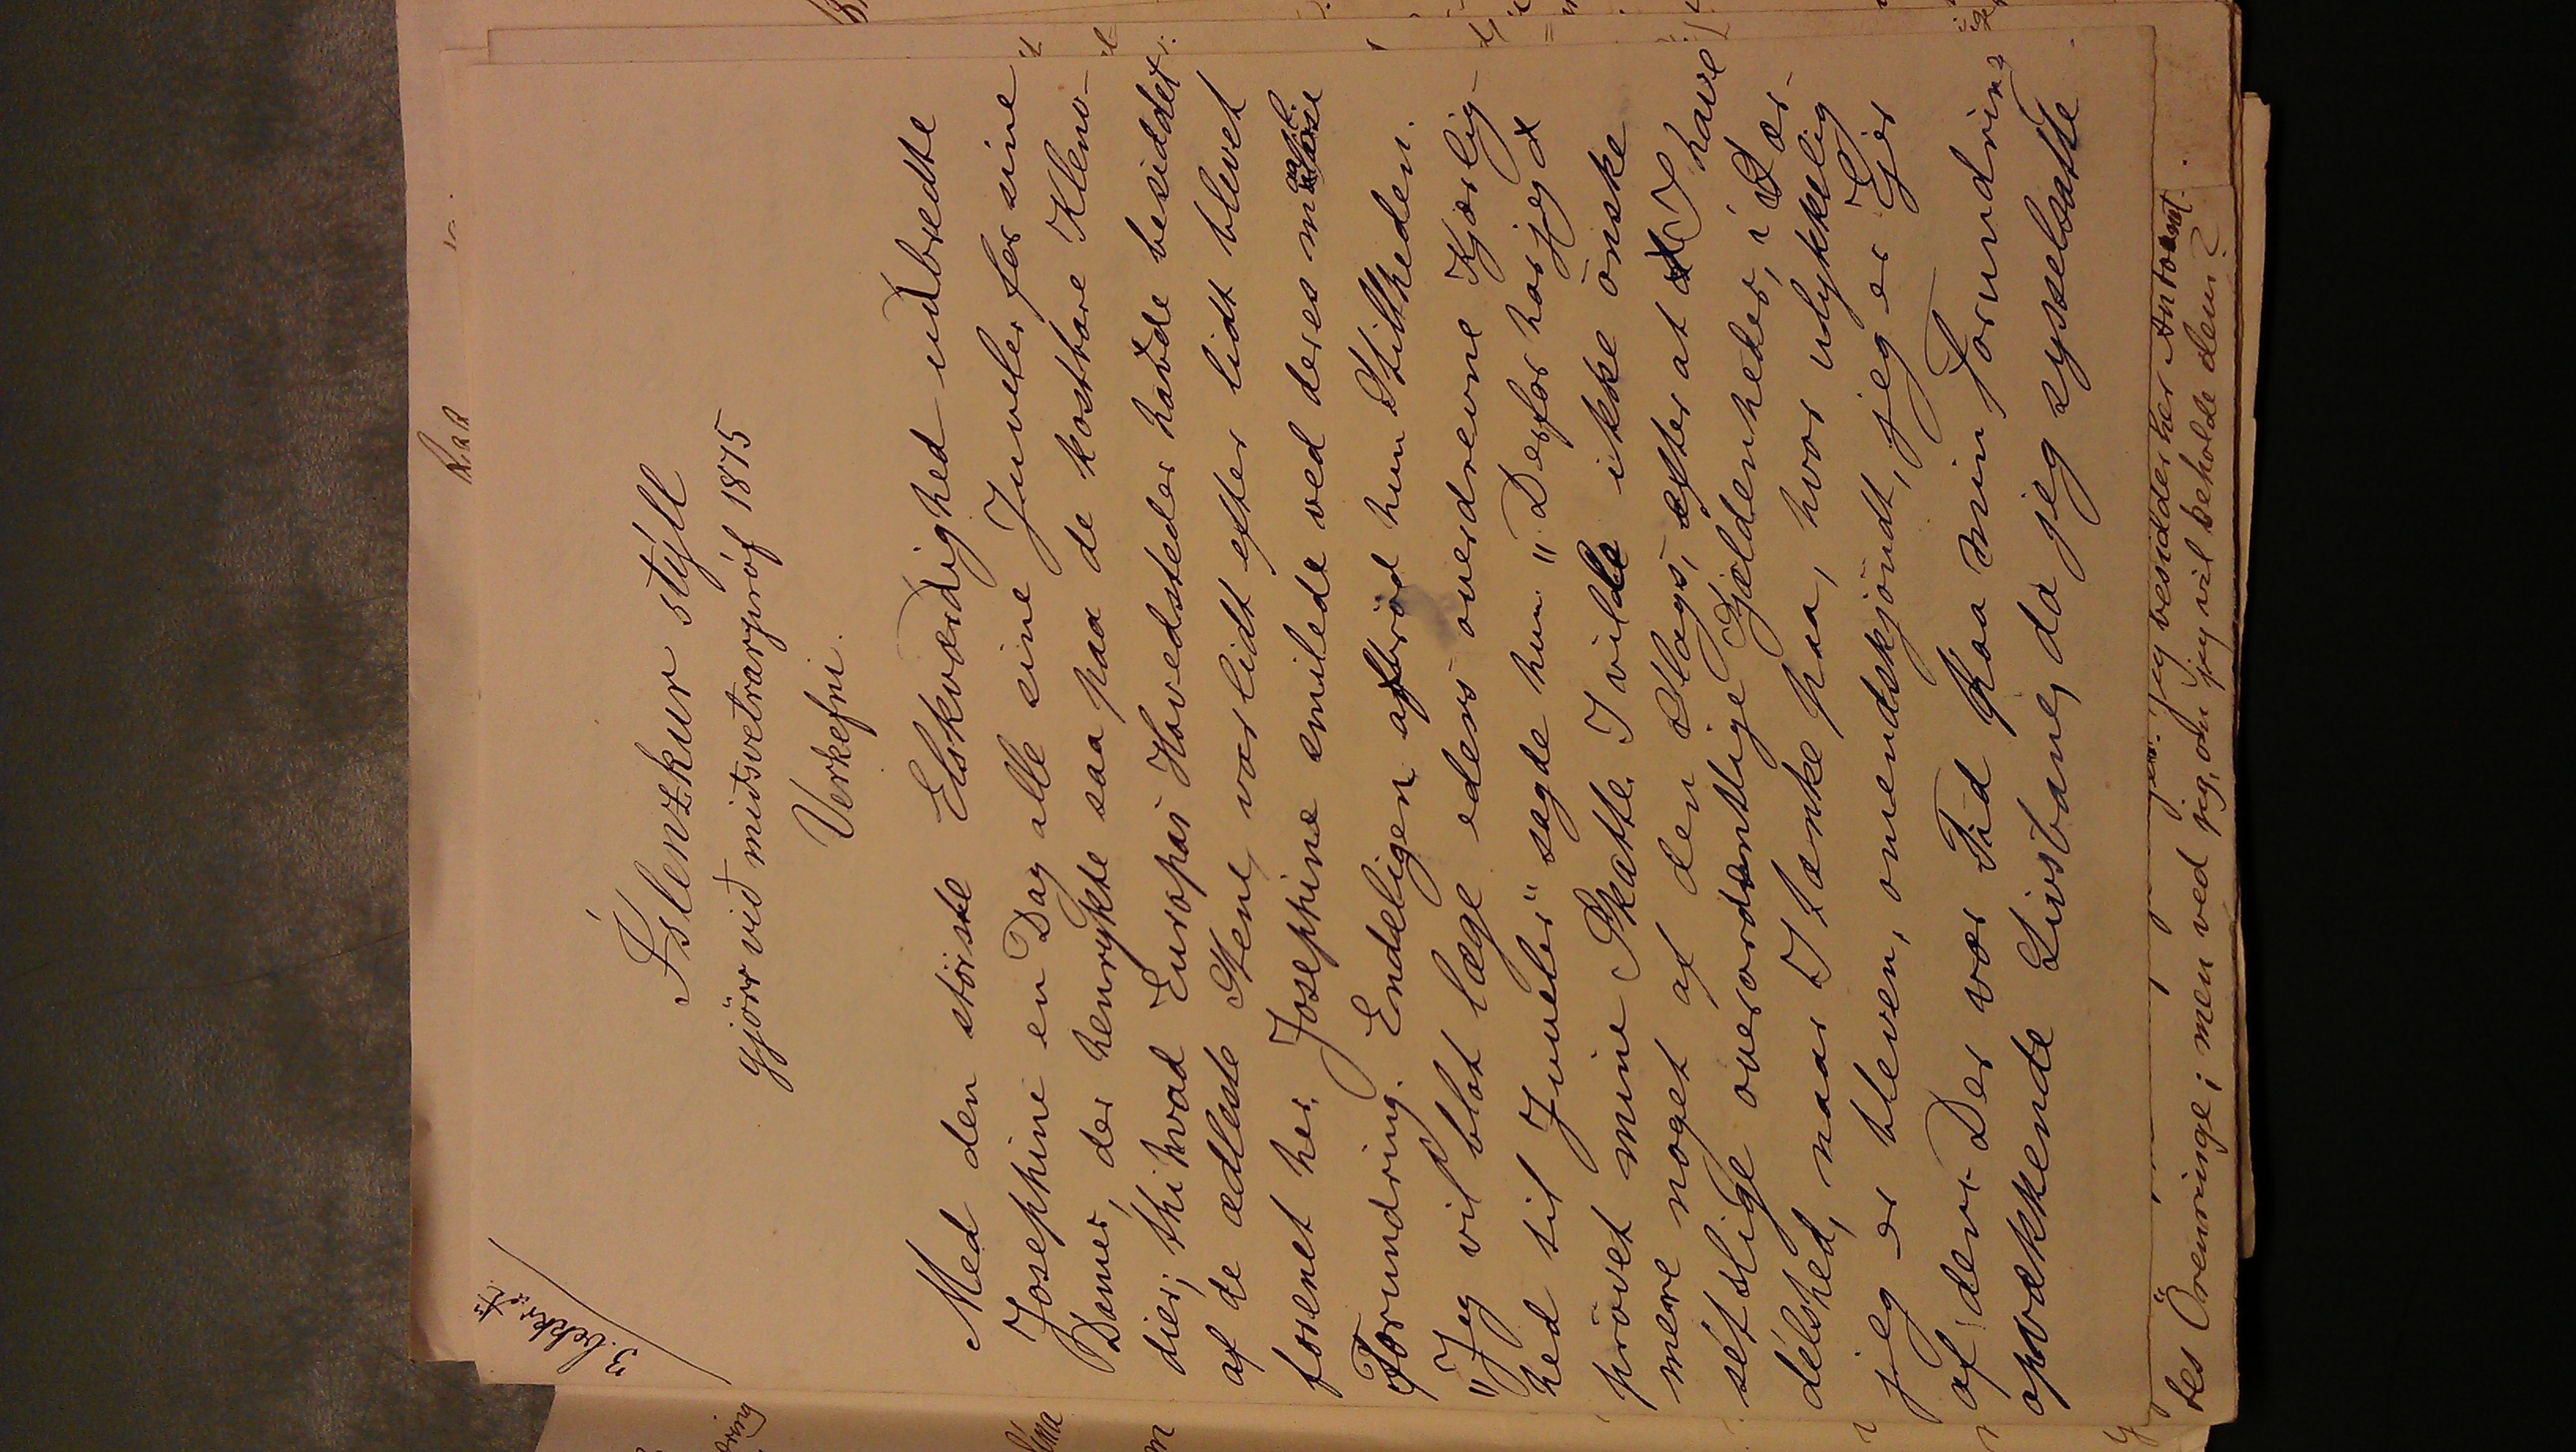 3. bekkr
Íslenzkur stýll
gjörr við miðsvetrarpróf 1875
Verkefni.
Med den störste Elskværdighed udbredte
Josephine en Dag alle sine Juveler for sine
Damer, der henrykte saa paa de kostbare Kleno-
dier; thi hvad Europas Hovedstæder havde besiddet
af de ædleste Stene, var lidt efter lidt blevet
forenet her. Josephine smilede ved deres
Forundring. Endeligen afbröd hun Stilheden.
"Jeg vil blot læge eders overdrevne Kjærlig-
hed til Juveler" sagde hun. "Derfor har jeg
prövet mine Skatte. I vilde ikke önske
mere noget af den Slags, efter at I have
sét slige overordentlige Sjældenheder, i Sær-
délshed, naar I tænke paa, hvor ulykkelig
jeg er bleven, omendskjöndt jeg er Ejer
af dem. Der var Tid paa min Forundring
opvækkende Livsbane, da jeg sysselsatte
jeg besidder her
tes Örenringe; men ved jeg, om jeg vil beholde dem?